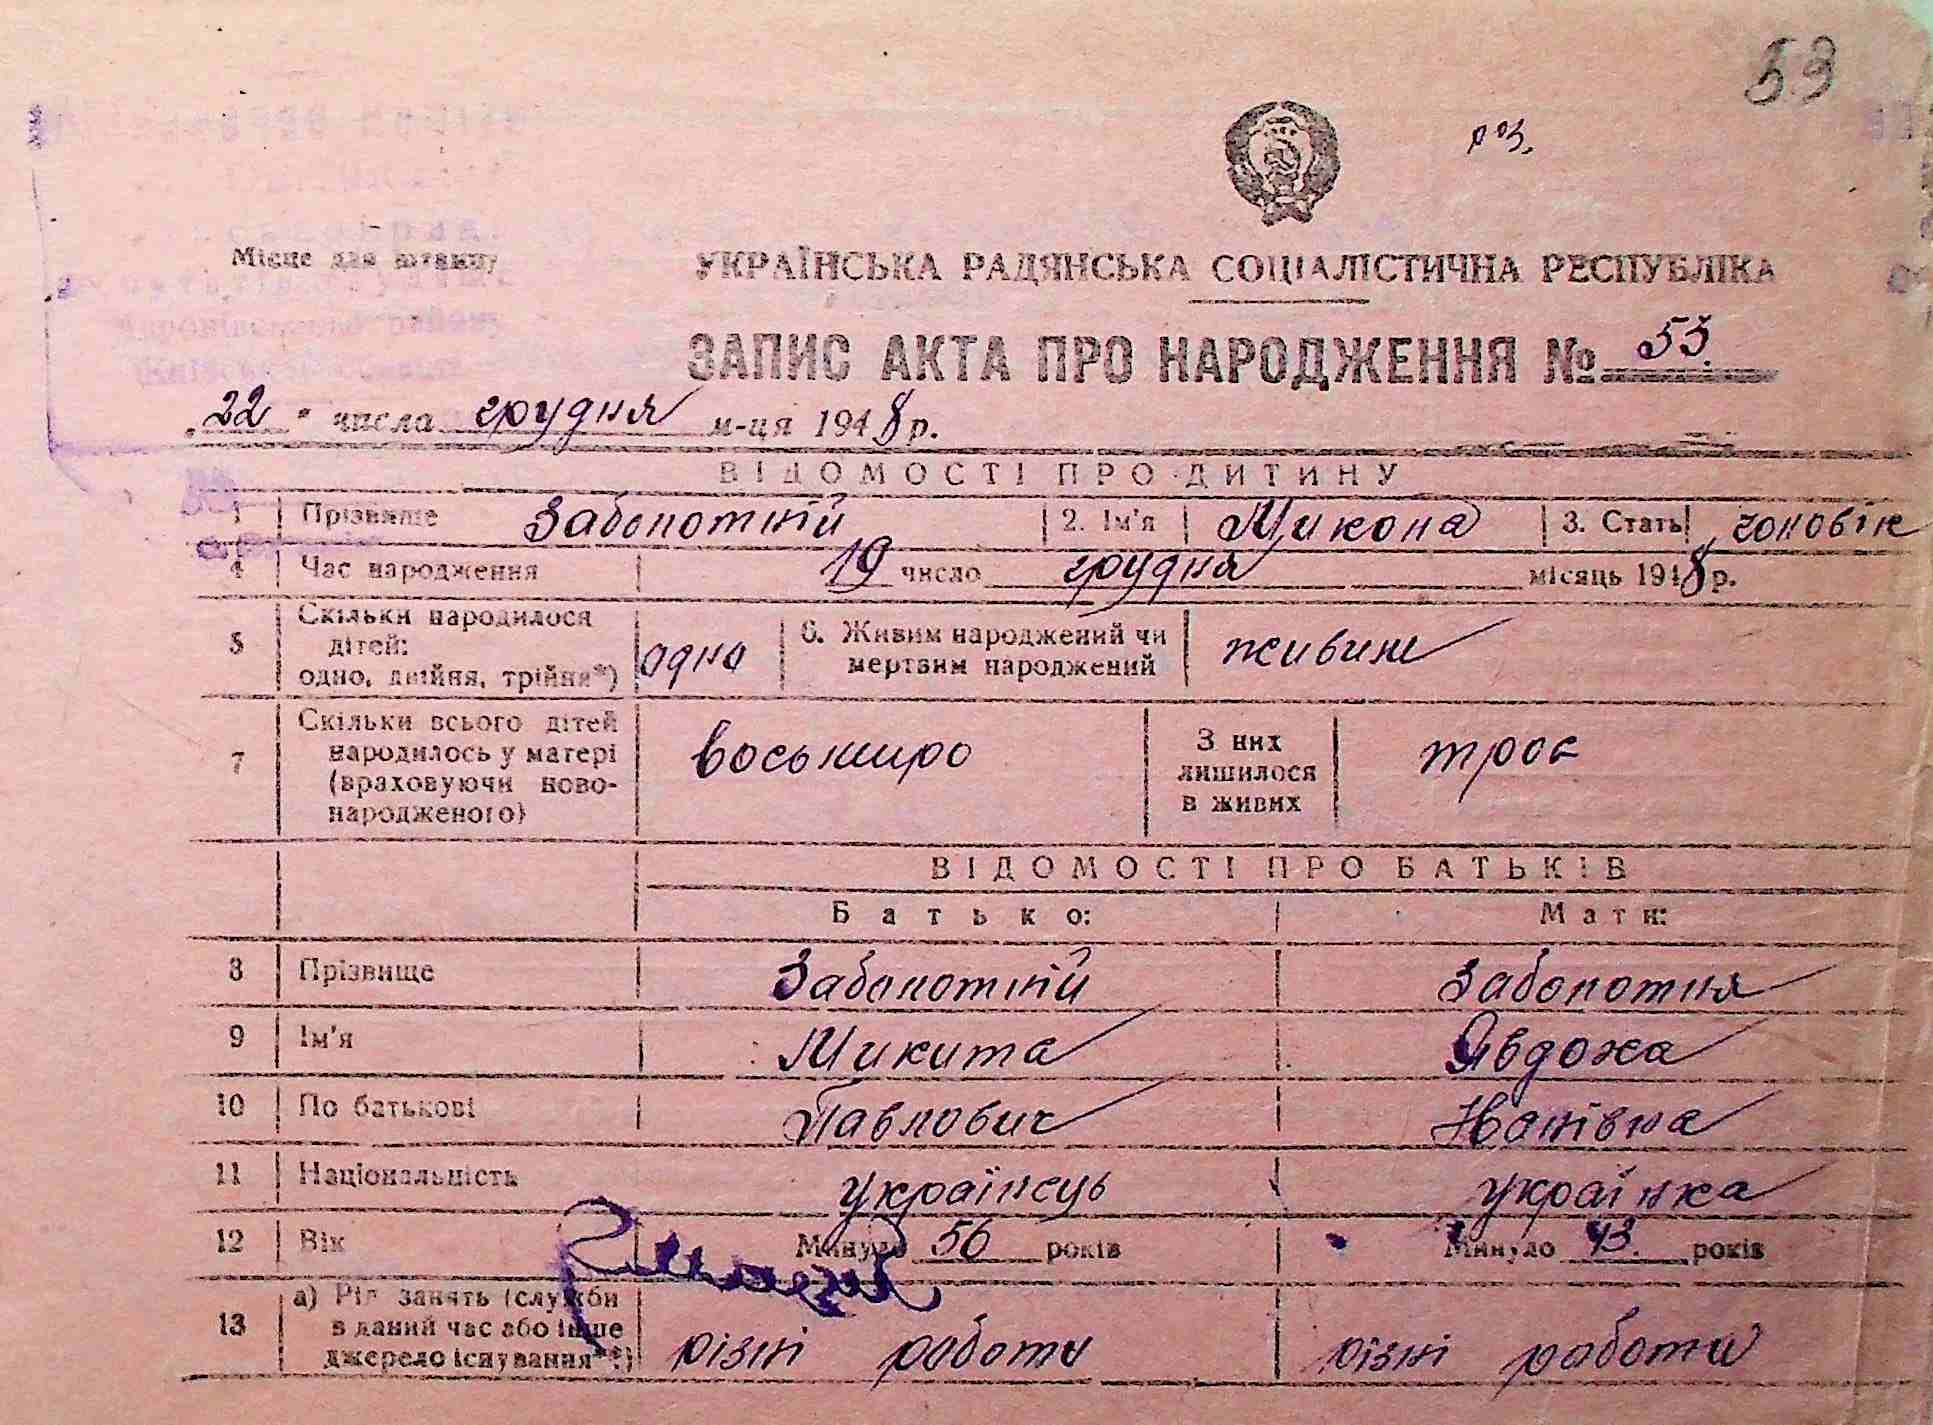 53
Місце для штампу
УКРАЇНСЬКА РАДЯНСЬКА СОЦІАЛІСТИЧНА РЕСПУБЛІКА
ЗАПИС АКТА ПРО НАРОДЖЕННЯ № 53.
„22" числа грудня м-ця 1948 р.
ВІДОМОСТІ ПРО ДИТИНУ
1 Прізвище Заболотній 2. Ім'я Микола 3. Стать чоловік
4 Час народження 19 число грудня місяць 1948 р.
5 Скільки народилося дітей: одно, двійня, трійня*) одно 6. Живим народжений чи мертвим народжений живим
7 Скільки всього дітей народилось у матері (враховуючи новонародженого) восьмиро З них лишилося в живих троє
ВІДОМОСТІ ПРО БАТЬКІВ
Батько: Мати:
8 Прізвище Заболотній Заболотня
9 Ім'я Микита Явдоха
10 По батькові Павлович
11 Національність українець українка
12 Вік Минуло 56 років Минуло 43. років
13 а) Рід занять (служби в даний час або інше джерело існування**) різні роботи різні роботи